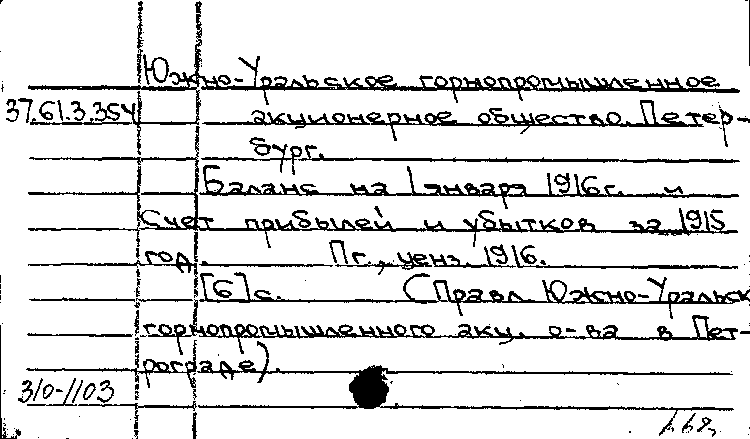 Южно-Уральское горнопромышленное
37.61.3.354 акционерное общество. Петер-
бург.
Баланс на 1 января 1916г. и
Счет прибылей и убытков за 1915
год. Пг., ценз. 1916.
[6]с. (Правл. Южно-Уральск
горнопромышленного акц. о-ва в Пет-
рограде).
310-1103